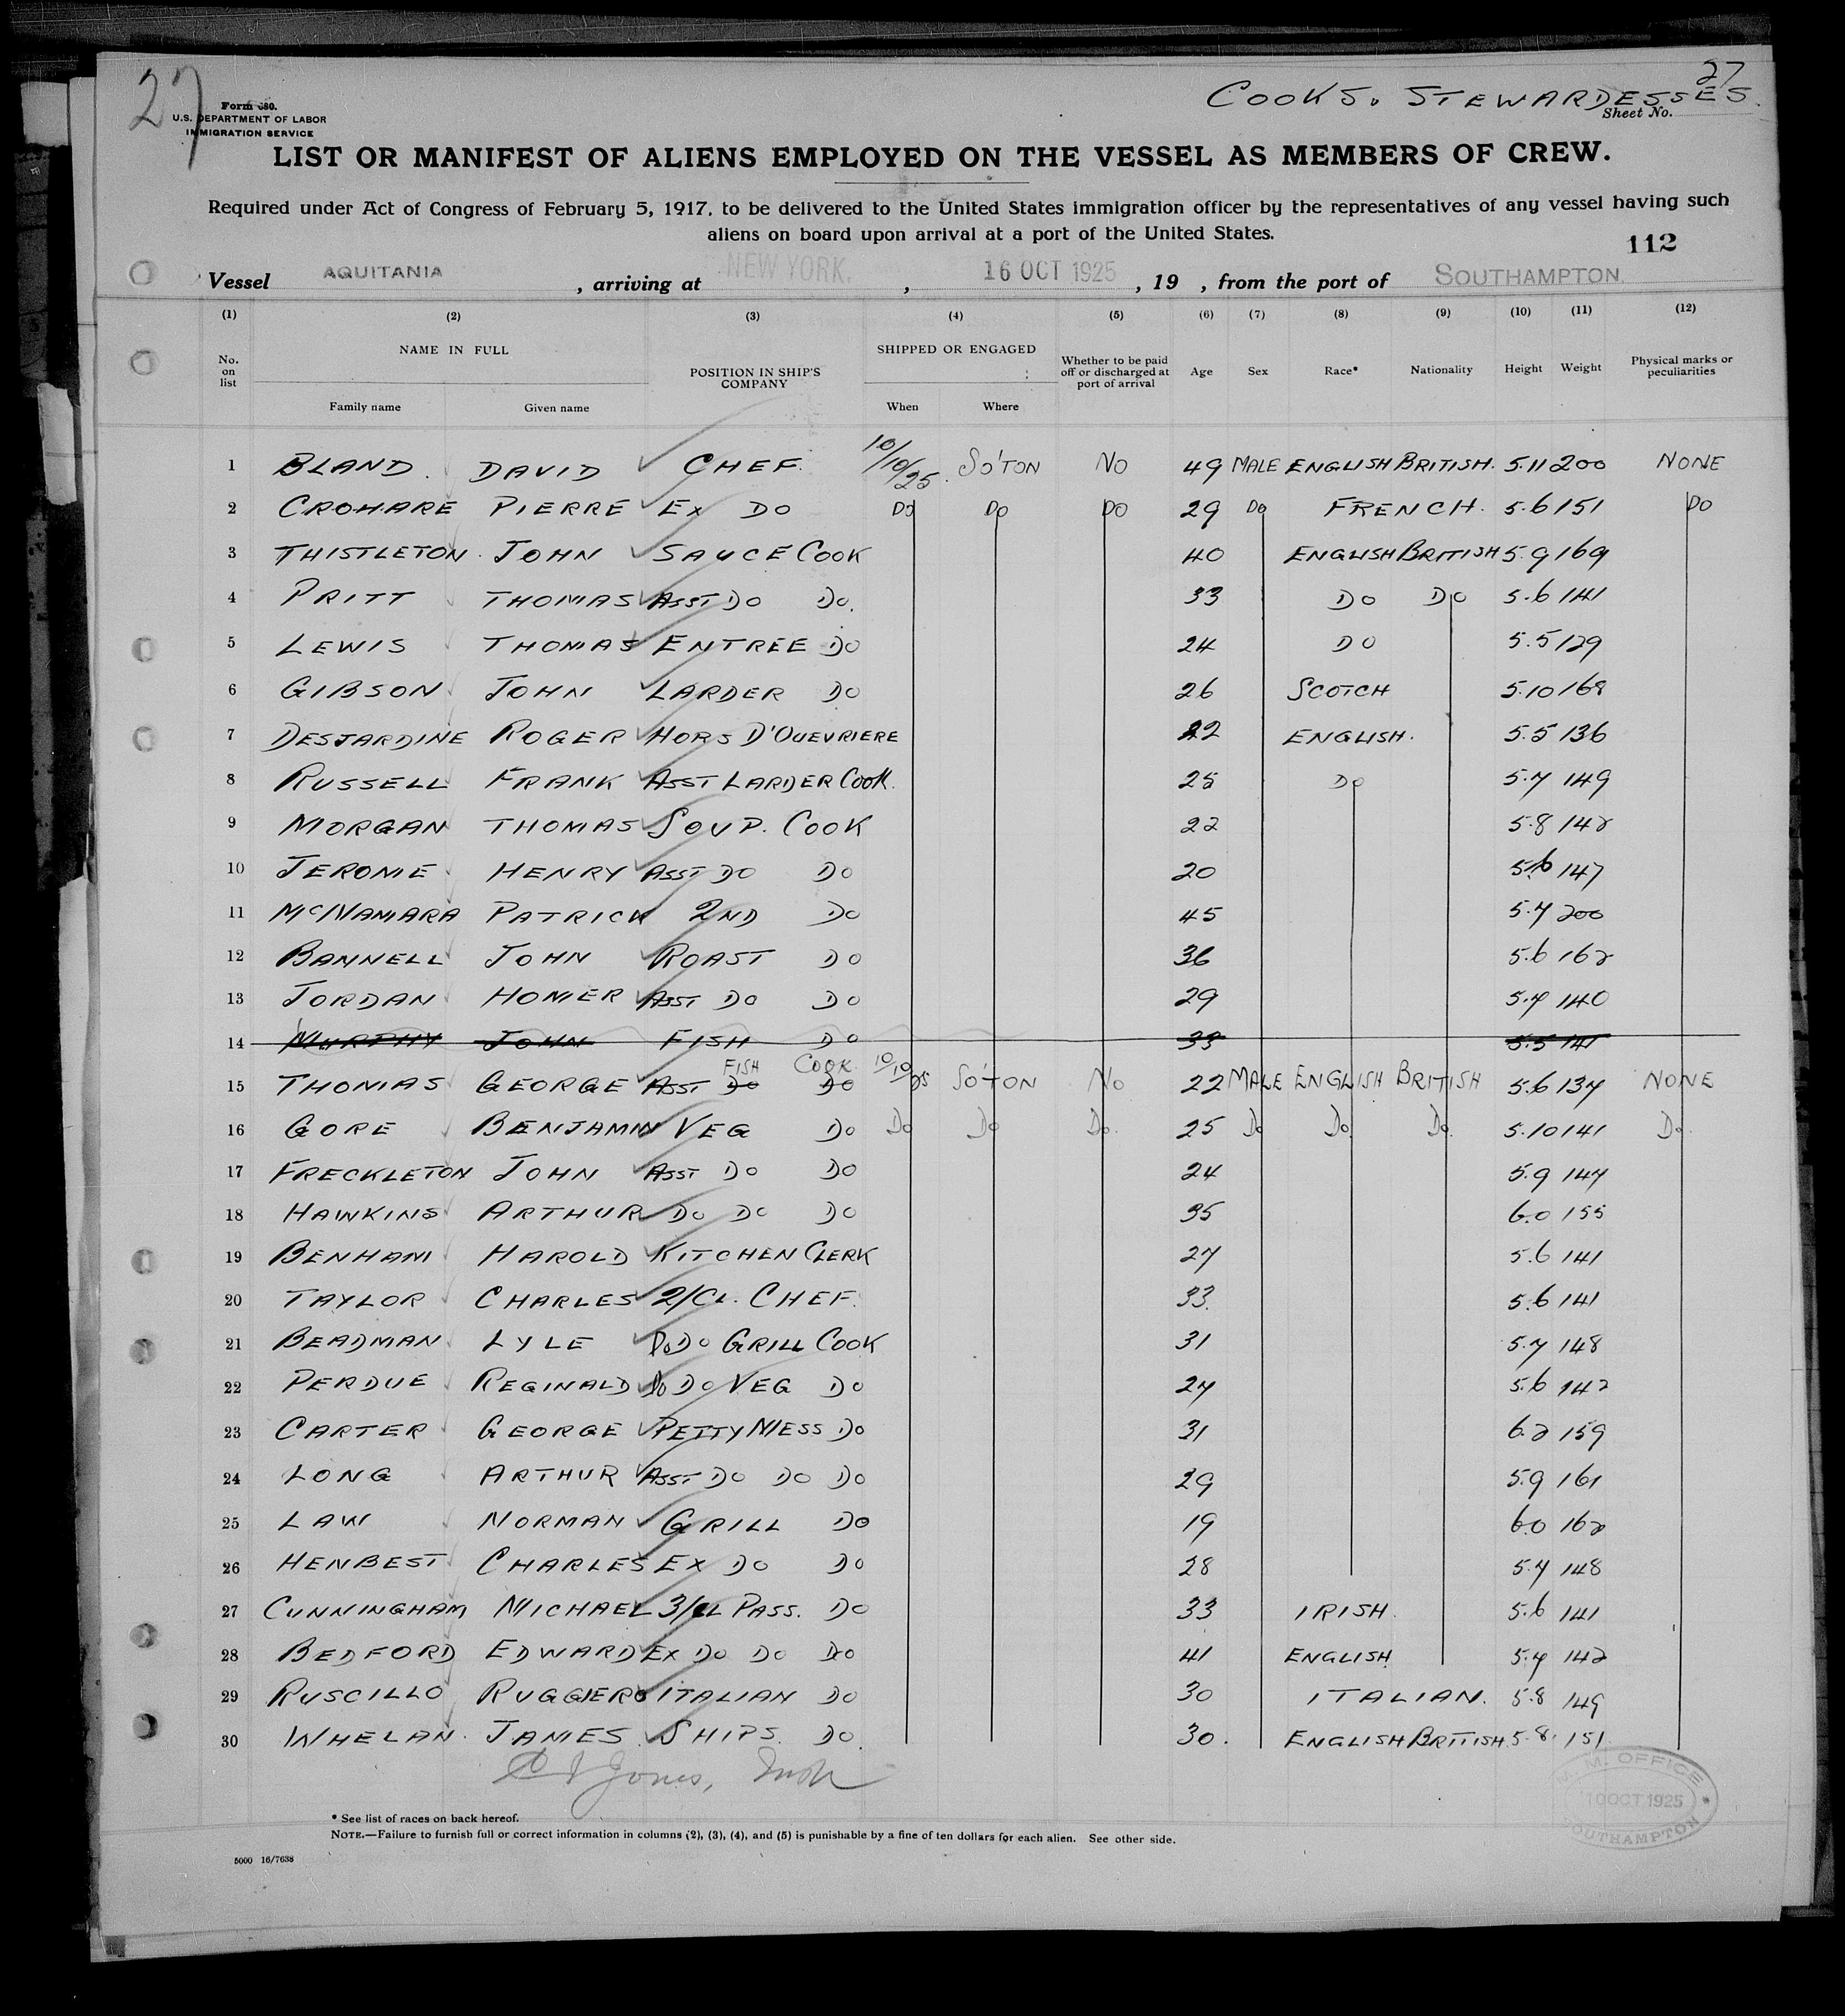 27
Form 680.
U.S. DEPARTMENT OF LABOR
IMMIGRATION SERVICE
COOKS. STEWARDESSES.
27
Sheet No.
LIST OR MANIFEST OF ALIENS EMPLOYED ON THE VESSEL AS MEMBERS OF CREW.
Required under Act of Congress of February 5, 1917, to be delivered to the United States immigration officer by the representatives of any vessel having such
aliens on board upon arrival at a port of the United States.
112
Vessel AQUITANIA , arriving at NEW YORK. , 16 OCT 1925 , 19 , from the port of SOUTHAMPTON.
(1) (2) (3) (4) (5) (6) (7) (8) (9) (10) (11) (12)
No. on list NAME IN FULL Family name Given name POSITION IN SHIP'S COMPANY SHIPPED OR ENGAGED When Where Whether to be paid off or discharged at port of arrival Age Sex Race* Nationality Height Weight Physical marks or peculiarities
1 BLAND. DAVID CHEF. 10/10/25. SO'TON NO 49 MALE ENGLISH BRITISH. 5.11 200 NONE
2 CROHARE PIERRE EX DO DO DO DO 29 DO FRENCH. 5.6 151 DO
3 THISTLETON. JOHN SAUCE COOK 40 ENGLISH BRITISH 5.9 169
4 PRITT THOMAS ASST DO DO. 33 DO DO 5.6 141
5 LEWIS THOMAS ENTREE DO 24 DO 5.5 129
6 GIBSON JOHN LARDER DO 26 SCOTCH 5.10 168
7 DESJARDINE ROGER HORS D'OUEVRIERE 22 ENGLISH. 5.5 136
8 RUSSELL FRANK ASST LARDER COOK. 25 DO 5.7 149
9 MORGAN THOMAS SOUP. COOK 22 5.8 142
10 JEROME HENRY ASST DO DO 20 5.6 147
11 McNAMARA PATRICK 2ND DO 45 5.7 200
12 BANNELL JOHN ROAST DO 36 5.6 162
13 JORDAN HOMER ASST DO DO 29 5.7 140
14 MURPHY JOHN FISH DO 33 5.5 141
15 THOMAS GEORGE ASST DO FISH DO COOK 10/10/25 SO'TON NO 22 MALE ENGLISH BRITISH 5.6 137 NONE
16 GORE BENJAMIN VEG DO DO DO DO. 25 DO DO. DO. 5.10 141 DO.
17 FRECKLETON JOHN ASST DO DO 24 5.9 147
18 HAWKINS ARTHUR DO DO DO 35 6.0 155
19 BENHAM HAROLD KITCHEN CLERK 27 5.6 141
20 TAYLOR CHARLES 2/CL. CHEF. 33. 5.6 141
21 BEADMAN LYLE DO DO GRILL COOK 31 5.7 148
22 PERDUE REGINALD DO DO VEG DO 27 5.6 142
23 CARTER GEORGE PETTY MESS DO 31 6.2 159
24 LONG ARTHUR ASST DO DO DO 29 5.9 161
25 LAW NORMAN GRILL DO 19 6.0 162
26 HENBEST CHARLES EX DO DO 28 5.7 148
27 CUNNINGHAM MICHAEL 3/CL PASS. DO 33 IRISH. 5.6 141
28 BEDFORD EDWARD EX DO DO DO 41 ENGLISH. 5.7 142
29 RUSCILLO RUGGIERO ITALIAN DO 30 ITALIAN. 5.8 149
30 WHELAN. JAMES. SHIPS. DO. 30. ENGLISH BRITISH. 5.8. 151
Jones,
* See list of races on back hereof.
NOTE.—Failure to furnish full or correct information in columns (2), (3), (4), and (5) is punishable by a fine of ten dollars for each alien. See other side.
M. M. OFFICE
10 OCT 1925
SOUTHAMPTON
5000 16/7638